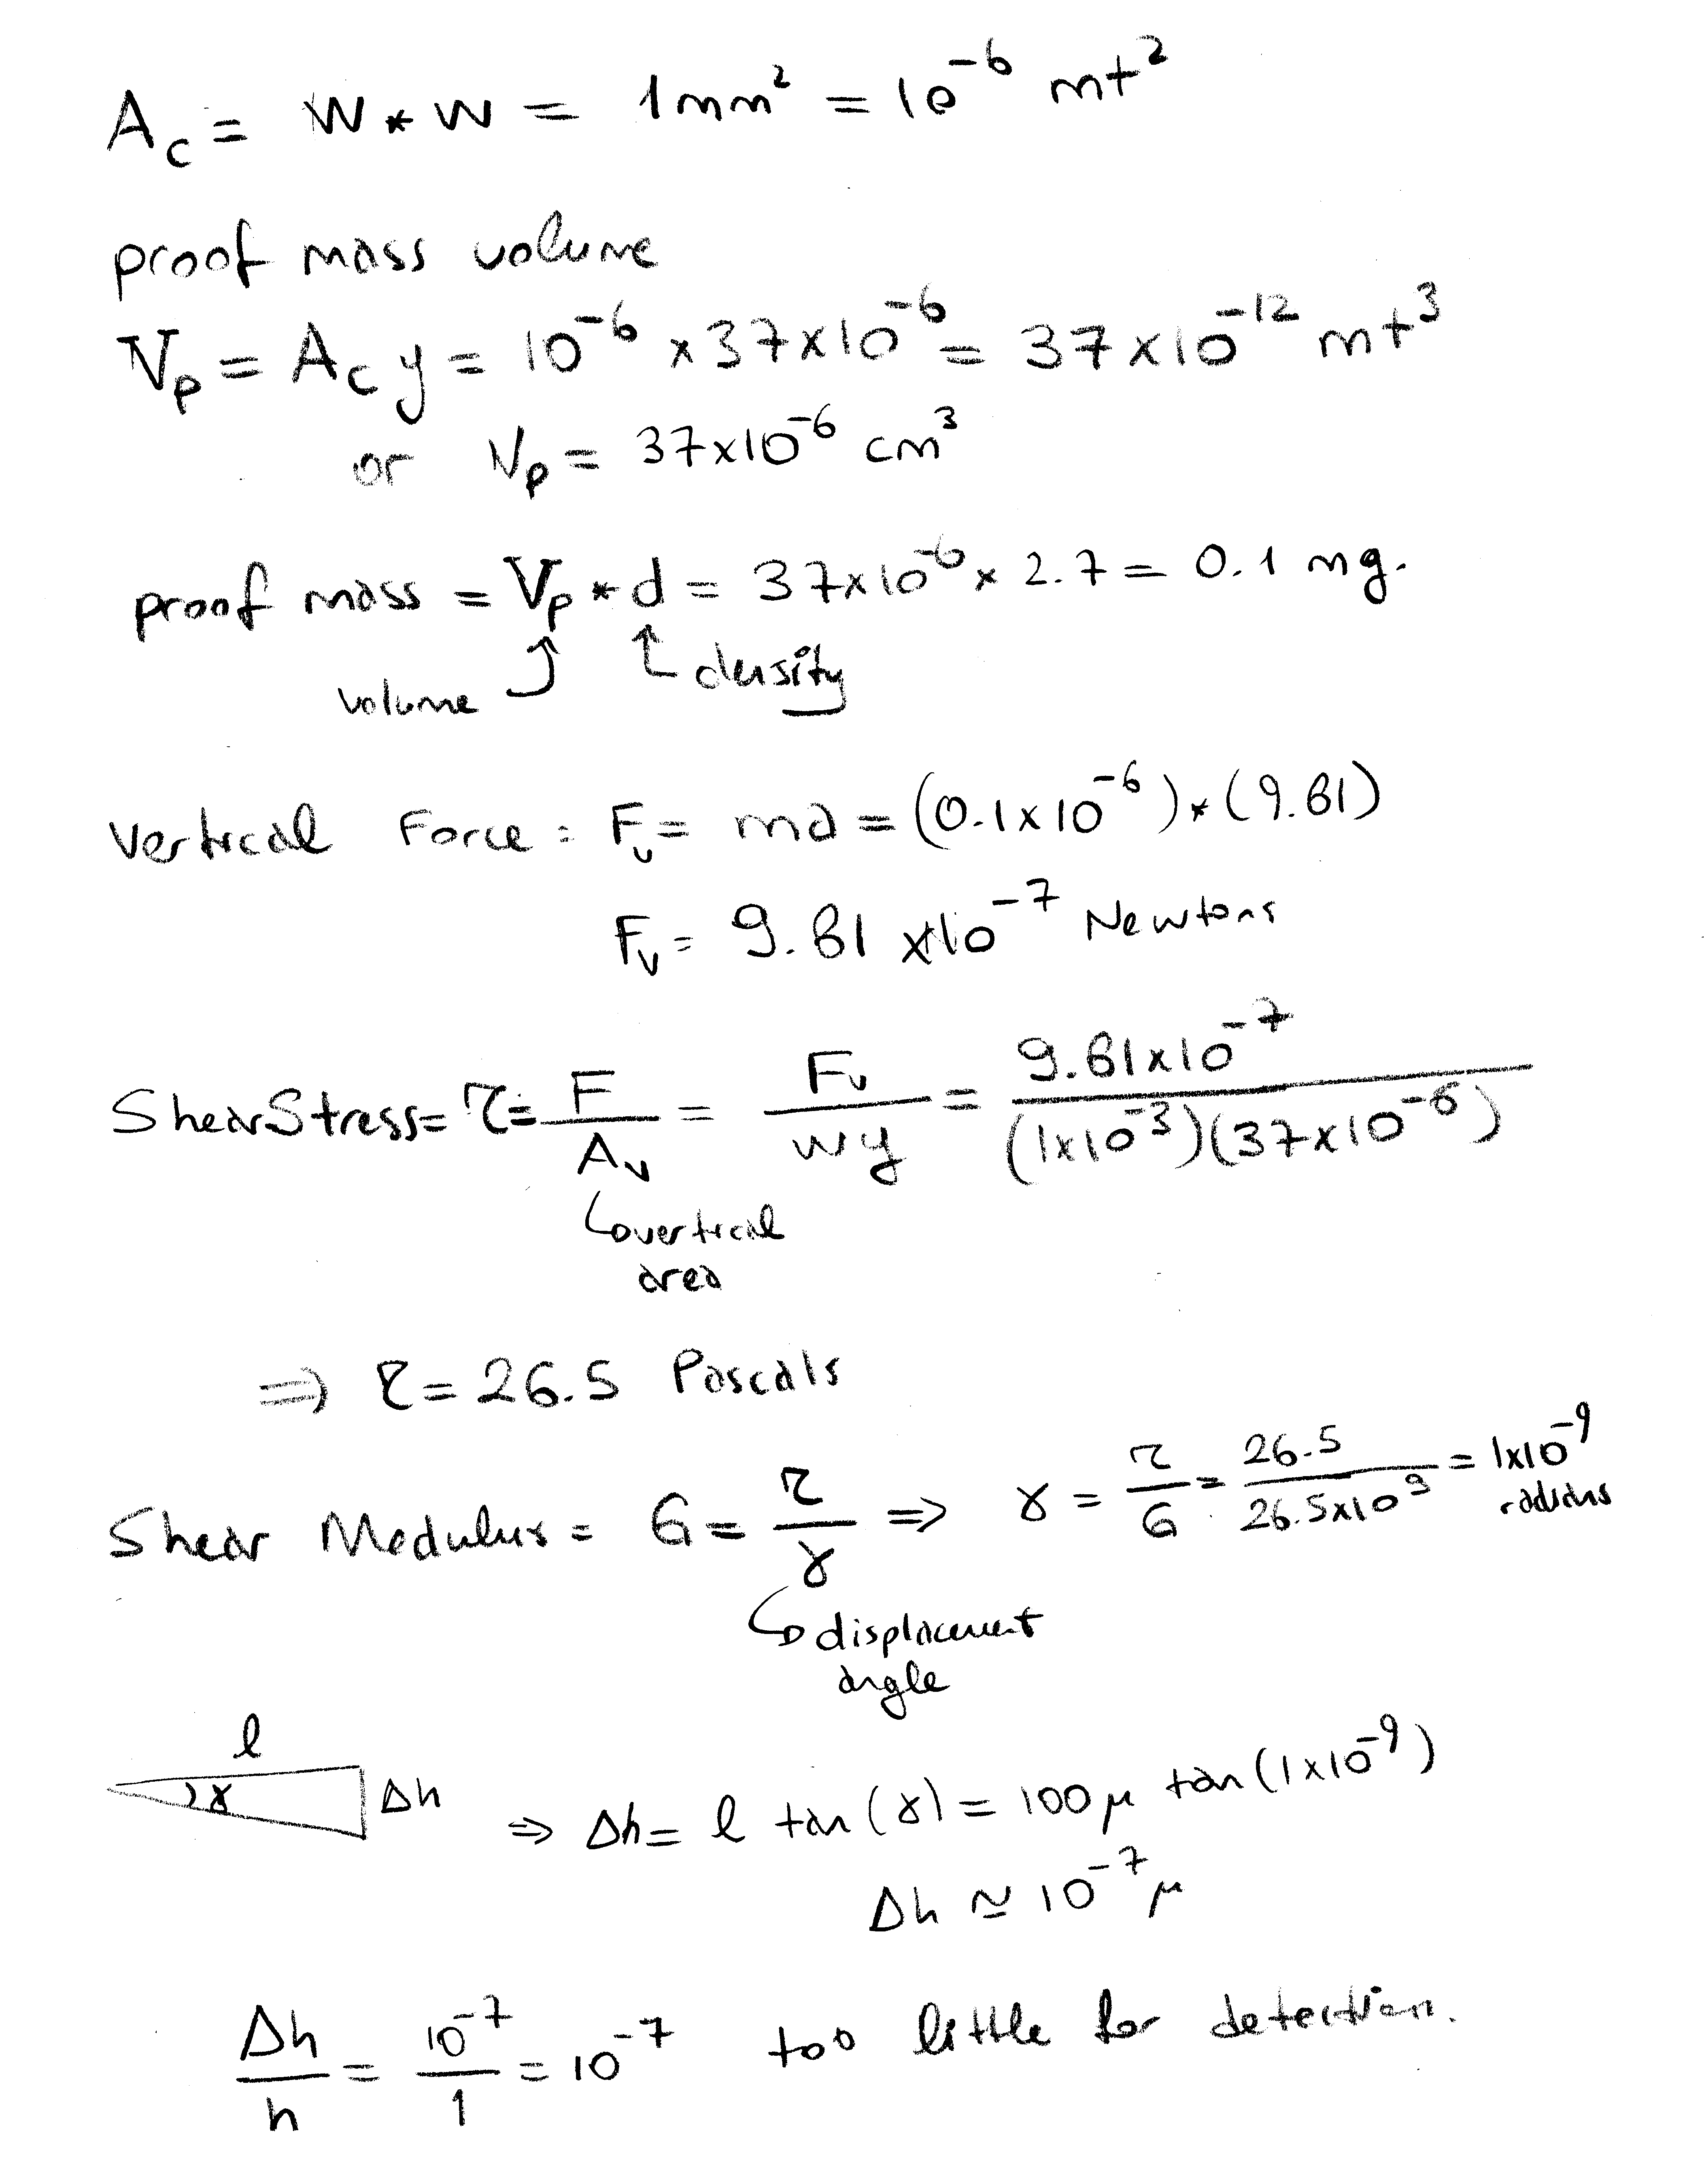 A_c = W * W = 1mm² = 10⁻⁶ mt²
proof mass volume
V_p = A_c y = 10⁻⁶ × 37×10⁻⁶ = 37×10⁻¹² mt³
or V_p = 37×10⁻⁶ cm³
proof mass = V_p * d = 37×10⁻⁶ × 2.7 = 0.1 mg.
volume density
Vertical Force = F_v = ma = (0.1×10⁻⁶)*(9.81)
F_v = 9.81 ×10⁻⁷ Newtons
Shear Stress = τ = F/A_v = F_v/wy = 9.81×10⁻⁷/(1×10⁻³)(37×10⁻⁶)
vertical
area
⇒ τ = 26.5 Pascals
Shear Modulus = G = τ/γ ⇒ γ = τ/G = 26.5/26.5×10⁹ = 1×10⁻⁹ radians
displacement
angle
l
γ Δh ⇒ Δh = l tan(γ) = 100μ tan(1×10⁻⁹)
Δh ≃ 10⁻⁷ μ
Δh/h = 10⁻⁷/1 = 10⁻⁷ too little for detection.